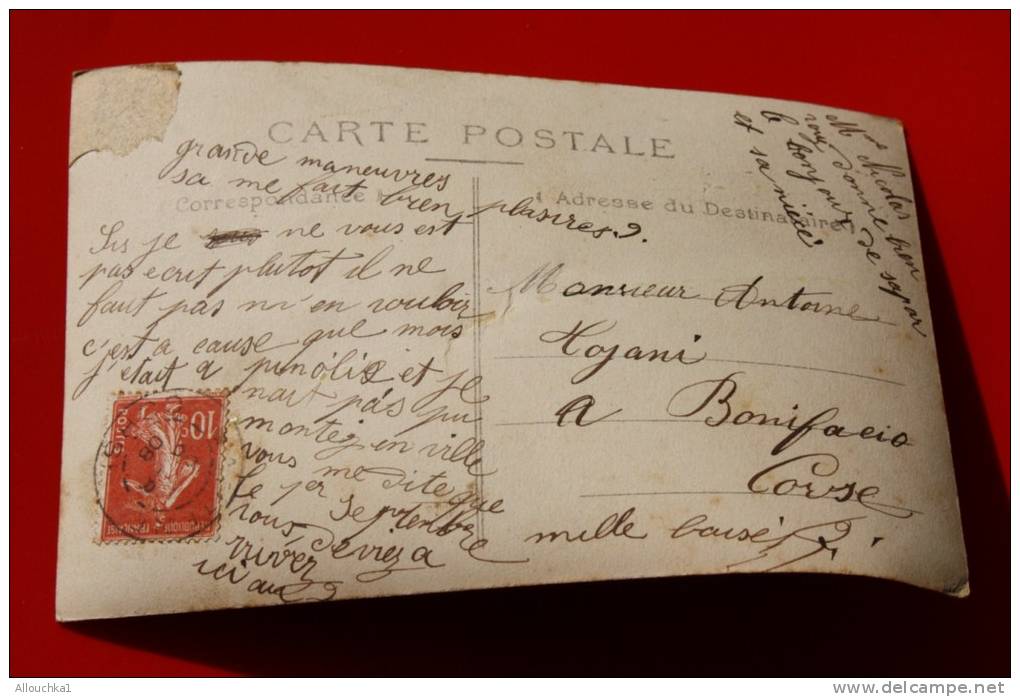 CARTE POSTALE
Correspondance
Adresse du Destinataire
Sis je ne vous est
pas ecrit plutot il ne
faut pas m'en vouloir
c'est a cause que mois
j'etait a et je
nait pas pu
montez en ville
vous me dite que
le 1er Septembre
vous deviez a
rrivez
ici aux
grande maneuvres
sa me fait bien plasires.
mille baisé
Monsieur Antoine
Tojani
a Bonifacio
Corse
Mr Nicolas bien
vous donne bien
le bonjour de sa par
et sa niece
10c
POSTES
REPUBLIQUE FRANÇAISE
Allouchka1
http://www.delcampe.net